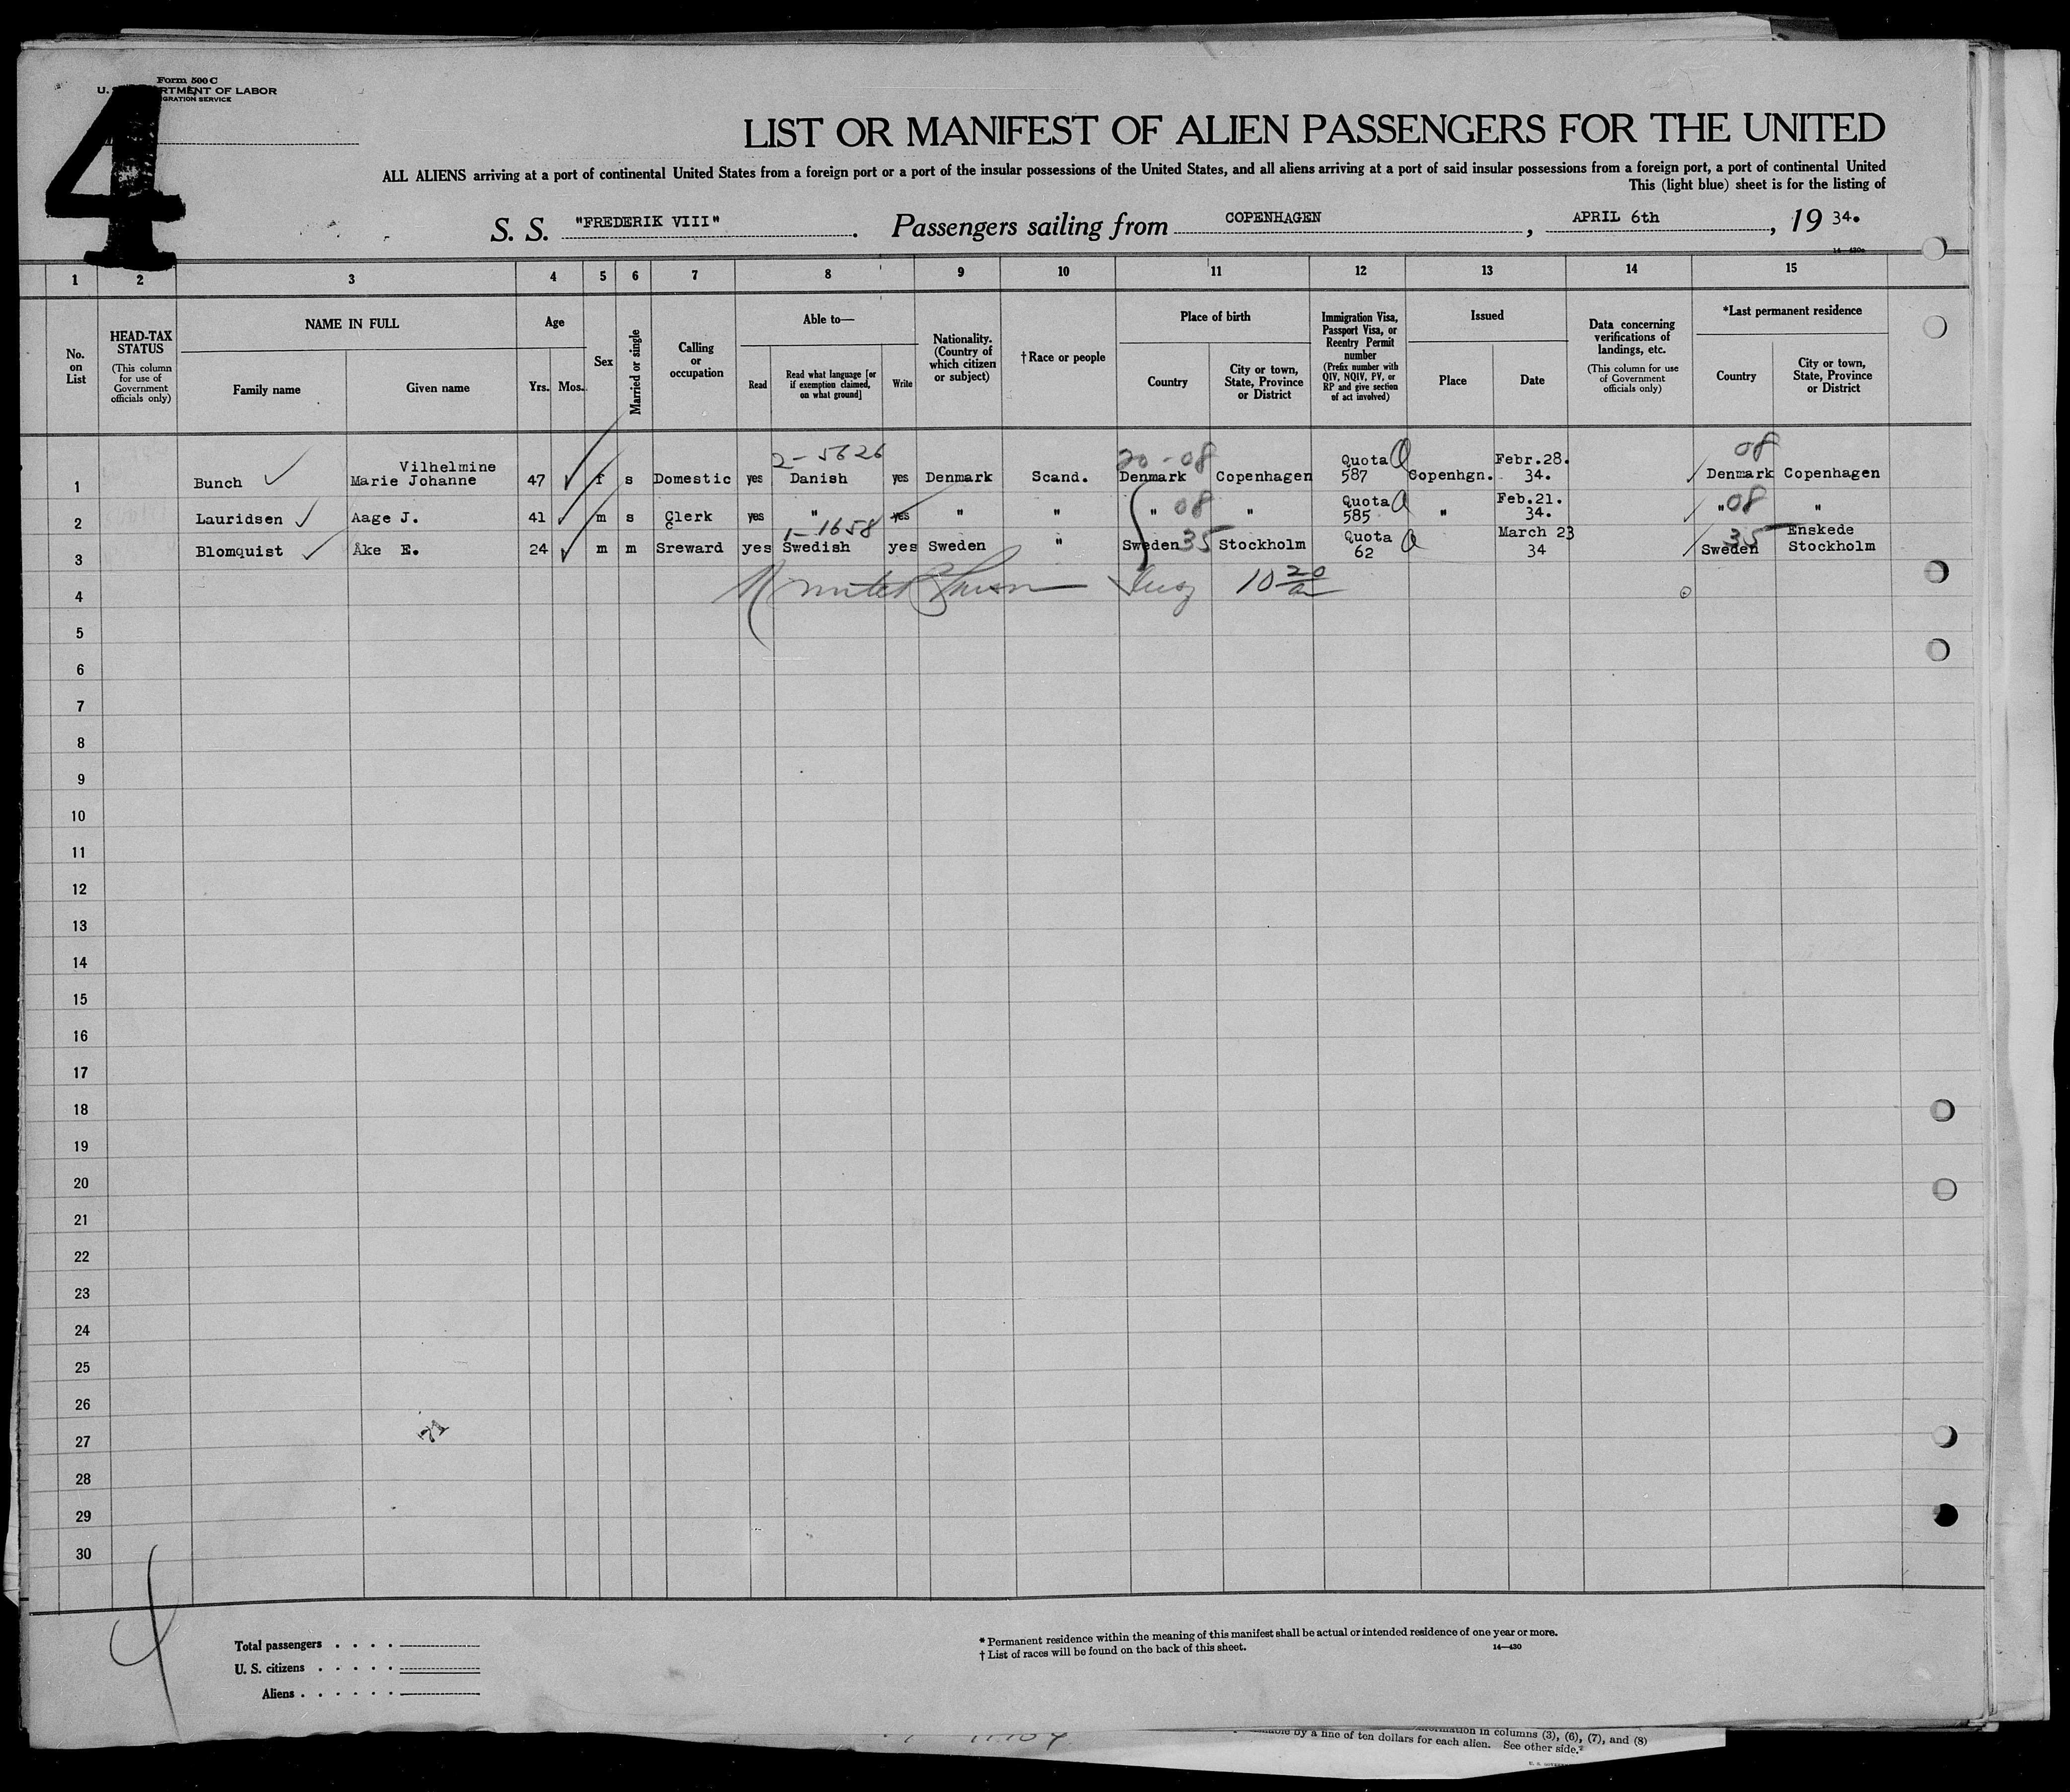 Form 500 C
U. S. DEPARTMENT OF LABOR
IMMIGRATION SERVICE
4
LIST OR MANIFEST OF ALIEN PASSENGERS FOR THE UNITED
ALL ALIENS arriving at a port of continental United States from a foreign port or a port of the insular possessions of the United States, and all aliens arriving at a port of said insular possessions from a foreign port, a port of continental United
This (light blue) sheet is for the listing of
S. S. "FREDERIK VIII". Passengers sailing from COPENHAGEN, APRIL 6th, 19 34.
14—430a
1 2 3 4 5 6 7 8 9 10 11 12 13 14 15
No. on List
HEAD-TAX STATUS
(This column for use of Government officials only)
NAME IN FULL
Family name
Given name
Age
Yrs. Mos.
Sex
Married or single
Calling or occupation
Able to—
Read
Read what language [or if exemption claimed, on what ground]
Write
Nationality. (Country of which citizen or subject)
†Race or people
Place of birth
Country
City or town, State, Province or District
Immigration Visa, Passport Visa, or Reentry Permit number
(Prefix number with QIV, NQIV, PV, or RP and give section of act involved)
Issued
Place
Date
Data concerning verifications of landings, etc.
(This column for use of Government officials only)
*Last permanent residence
Country
City or town, State, Province or District
2-5626 20-08 08
1 Bunch Vilhelmine Marie Johanne 47 f s Domestic yes Danish yes Denmark Scand. Denmark Copenhagen Quota 587 Copenhgn. Febr.28. 34. Denmark Copenhagen
2 Lauridsen Aage J. 41 m s Clerk yes " yes " " " 08 " Quota 585 " Feb.21. 34. " 08 "
1-1658
3 Blomquist Åke E. 24 m m Sreward yes Swedish yes Sweden " Sweden 35 Stockholm Quota 62 March 23 34 Sweden 35 Enskede Stockholm
4 10 20
5
6
7
8
9
10
11
12
13
14
15
16
17
18
19
20
21
22
23
24
25
26
27
28
29
30
Total passengers
U. S. citizens
Aliens
* Permanent residence within the meaning of this manifest shall be actual or intended residence of one year or more.
† List of races will be found on the back of this sheet.
14—430
information in columns (3), (6), (7), and (8)
by a fine of ten dollars for each alien. See other side.